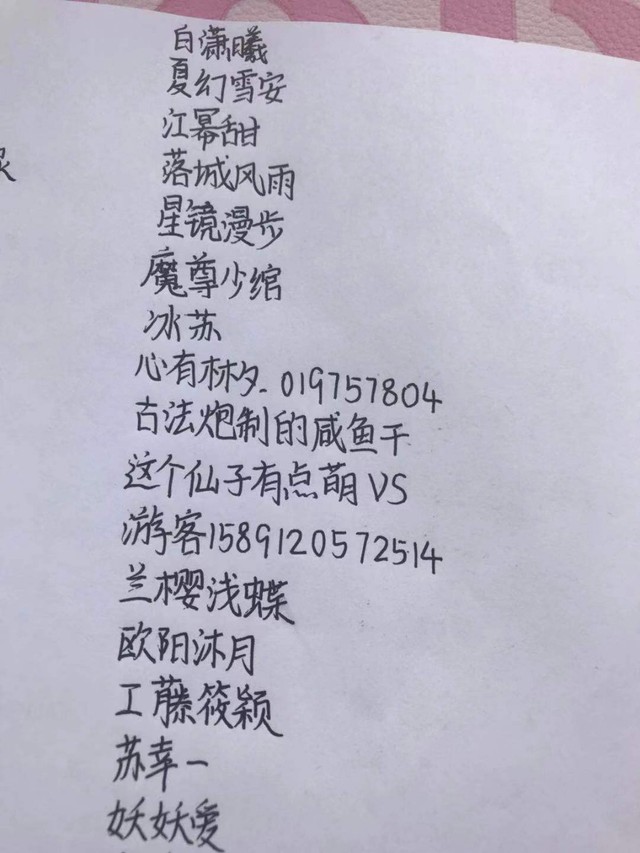 白潇曦
夏幻雪安
江幂甜
落城风雨
星镜漫步
魔尊少绾
冰苏
心有林夕_019757804
古法炮制的咸鱼干
这个仙子有点萌VS
游客1589120572514
兰樱浅蝶
欧阳沐月
工藤筱颖
苏幸一
妖妖爱